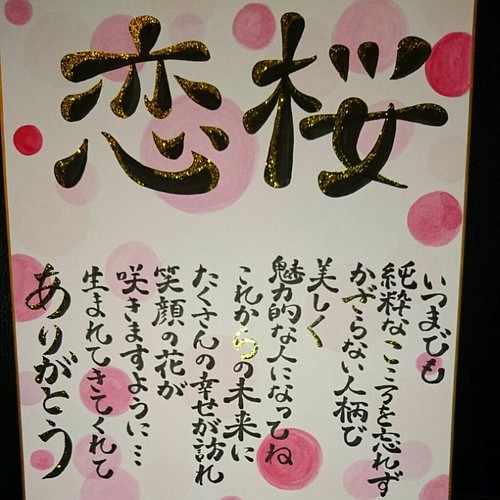 恋桜
いつまでも
純粋なこころを忘れず
かざらない人柄で
美しく
魅力的な人になってね
これからの未来に
たくさんの幸せが訪れ
笑顔の花が
咲きますように…
生まれてきてくれて
ありがとう